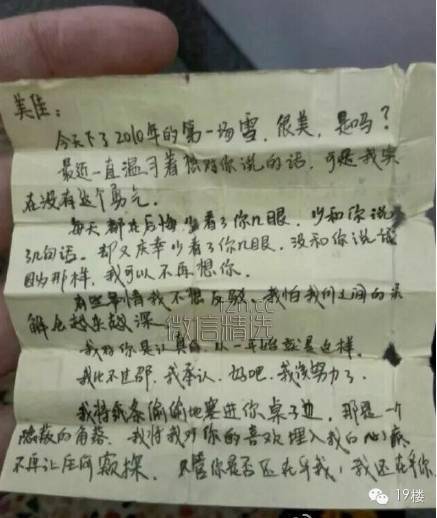 美佳：
今天下了2010年的第一场雪，很美，是吗？
最近一直温习着你对你说的话，可是我实
在没有这个勇气。
每天都在后悔少看了你几眼，少和你说
了几句话。却又庆幸少看了你几眼，没和你说话
因为那样，我可以不再想你。
有些事情我不想反驳，我怕我们之间的误
解会越来越深。
我对你是认真的，从一开始就是这样。
我比不过邵，我承认。好吧，我该努力了。
我将纸条偷偷地塞进你桌子边，那是一个
隐蔽的角落。我将我对你的喜欢埋入我的心底
不再让任何窥探。只管你是否还在乎我，我还在乎你
微信精选
1zn.cc
19楼